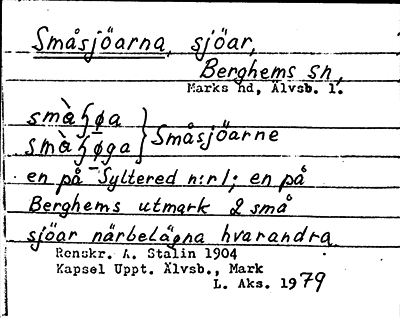 Småsjöarna, sjöar,
Berghems sn,
Marks hd, Älvsb. l.
små̀ɧøa } Småsjöarne
små̀ɧøga
en på Syltered n:r 1; en på
Berghems utmark 2 små
sjöar närbelägna hvarandra
Renskr. A. Stalin 1904
Kapsel Uppt. Älvsb., Mark
L. Aks. 1979